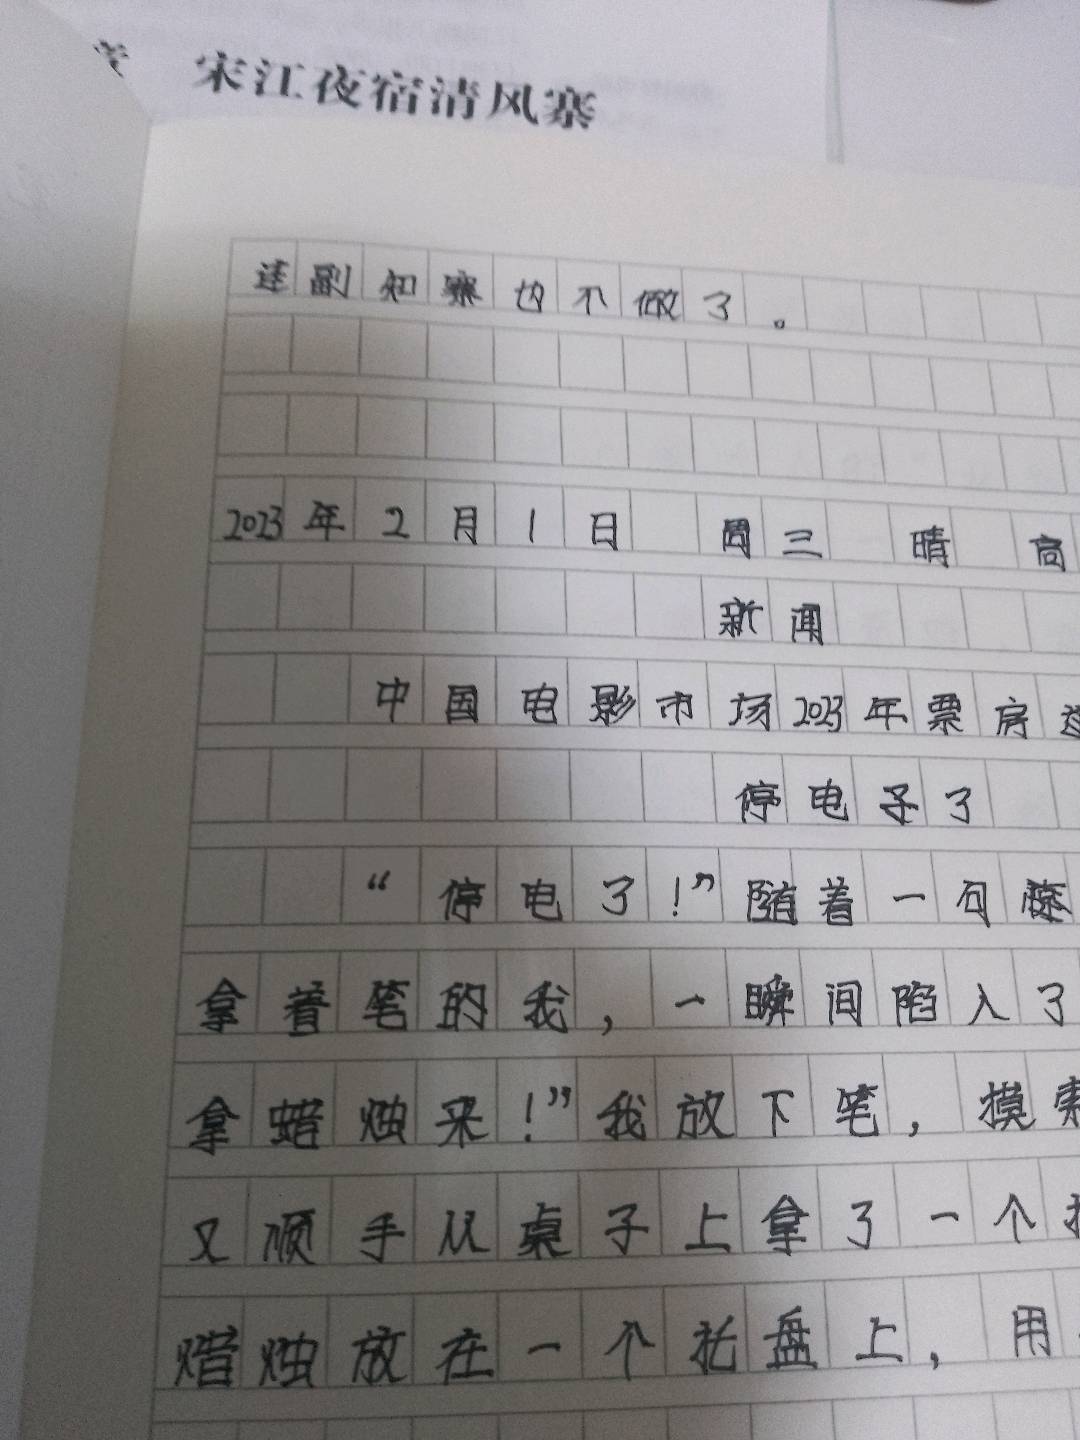 宋江夜宿清风寨
连副知寨也不做了。
2023年2月1日 周三 晴 高
新闻
中国电影市场2023年票房
停电了了
“停电了!”随着一句
拿着笔的我，一瞬间陷入了
拿蜡烛来!”我放下笔，摸索
又顺手从桌子上拿了一个
烛放在一个托盘上，用